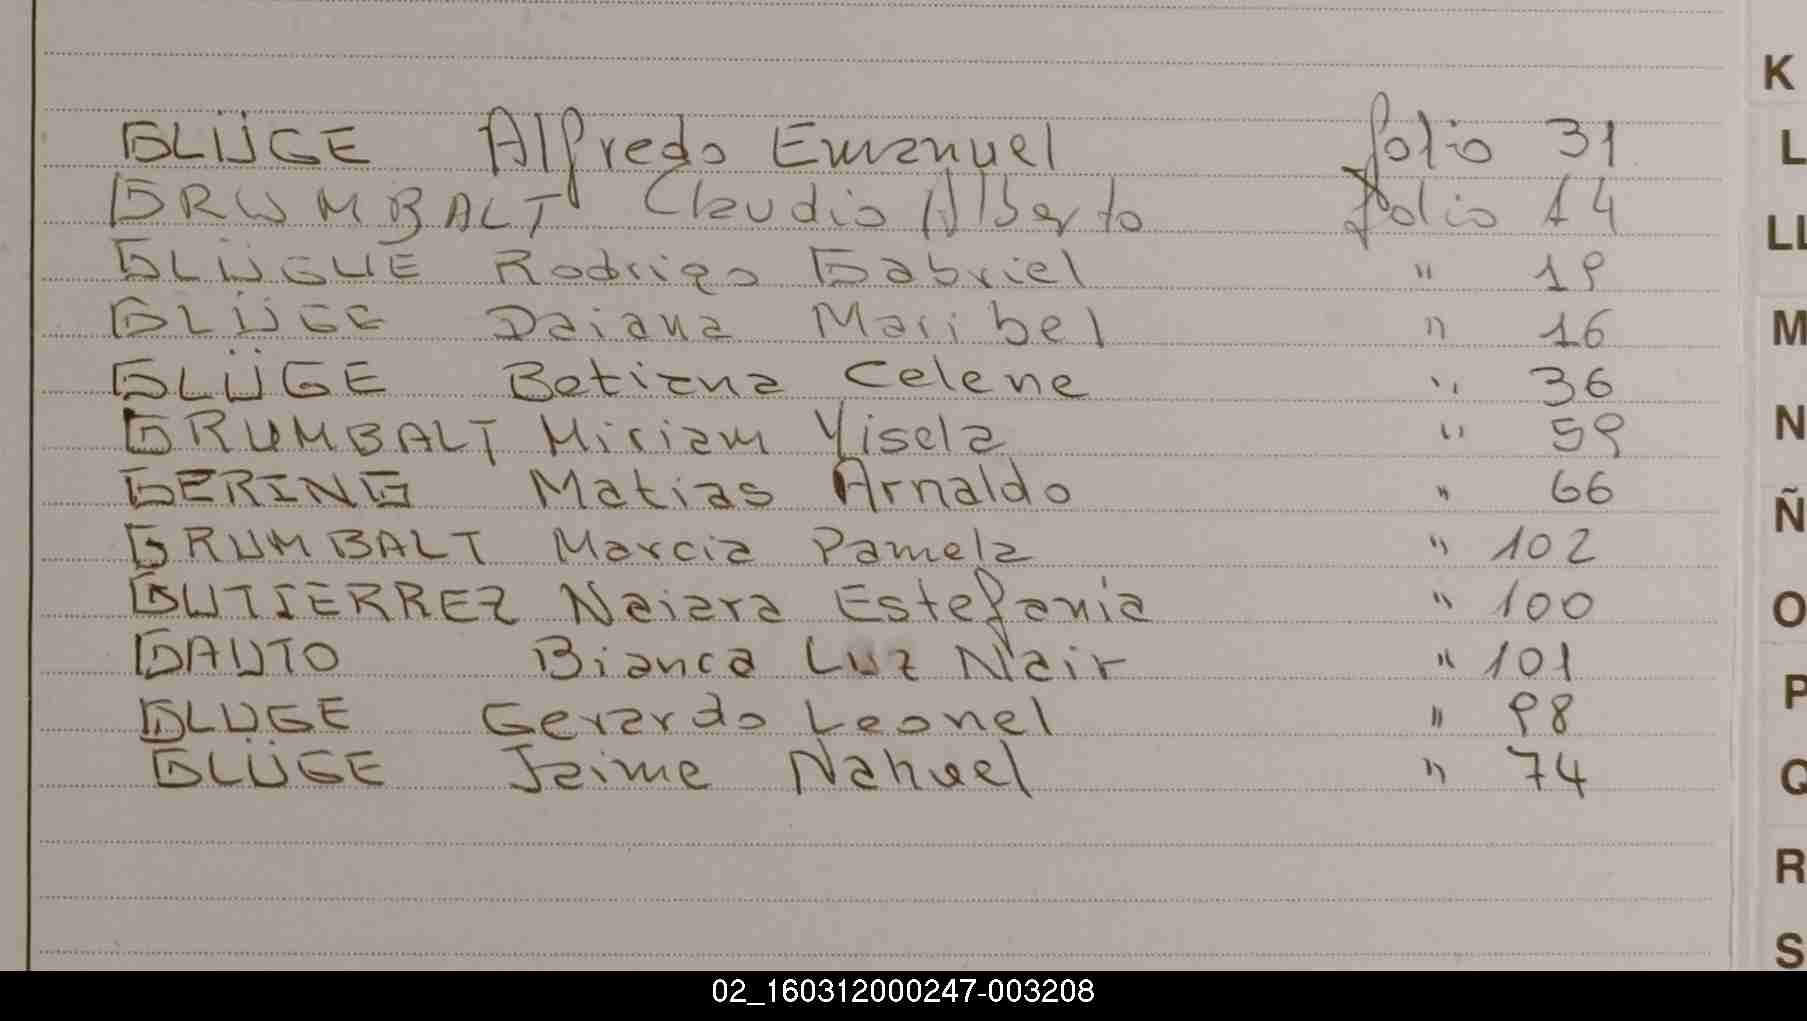 GLÜGE Alfredo Emanuel folio 31
GRUMBALT Claudio Alberto folio 14
GLÜGUE Rodrigo Gabriel " 19
GLÜGE Daiana Maribel " 16
GLÜGE Betiana Celene " 36
GRUMBALT Miriam Yisela " 59
GERING Matias Arnaldo " 66
GRUMBALT Marcia Pamela " 102
GUTIERREZ Naiara Estefania " 100
GAUTO Bianca Luz Nair " 101
GLUGE Gerardo Leonel " 98
GLÜGE Jaime Nahuel " 74
K
L
LL
M
N
Ñ
O
P
Q
R
S
02_160312000247-003208